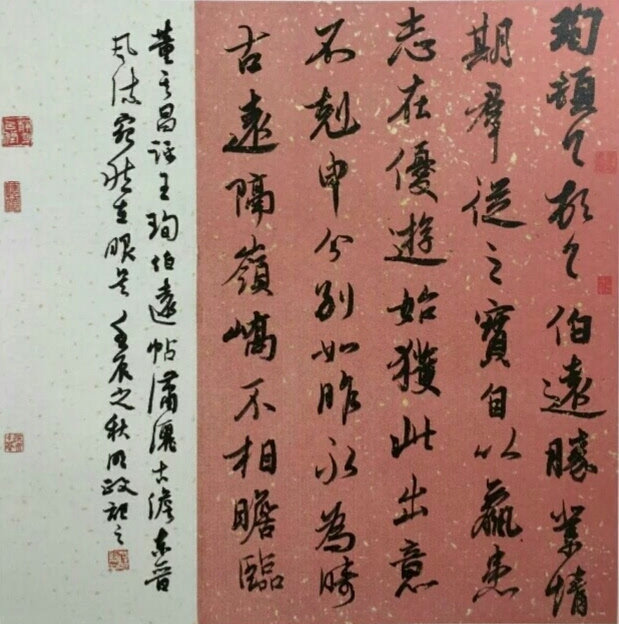 珣頓首頓首伯遠勝業情
期群從之寶自以羸患
志在優遊始獲此出意
不剋申分別如昨永為疇
古遠隔嶺嶠不相瞻臨
董其昌評王珣伯遠帖瀟灑古澹東晉
風流宛然在眼是壬辰之秋 政記之